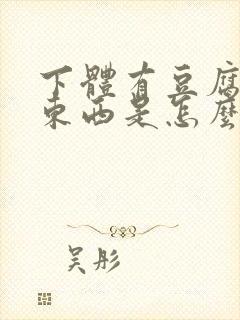 下體有豆腐
東西是怎麼
吳彤